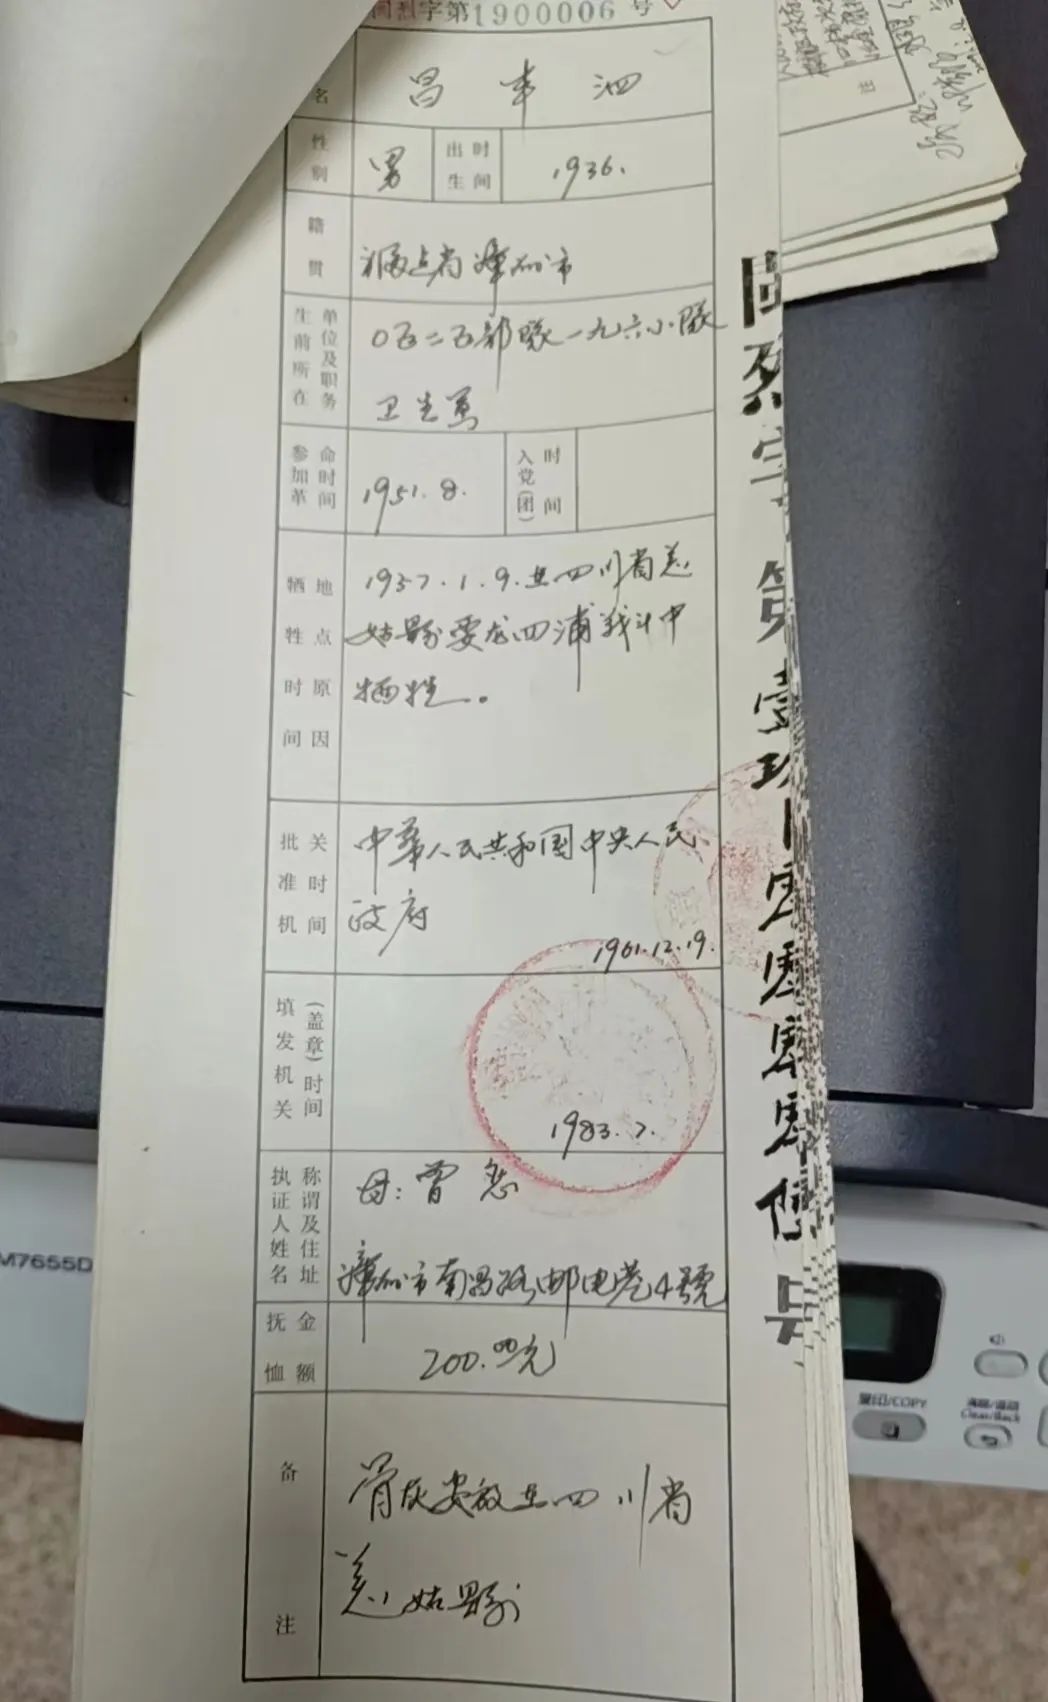 字第1900006号
名
昌丰泗
性别
男
出生时间
1936.
籍贯
福建省漳州市
生前所在单位及职务
0五二五部隊一九六小隊
卫生员
参加革命时间
1951.8.
入党(团)时间
牺牲时间地点原因
1957.1.9.在四川省美
姑县瓦龙四浦战斗中
牺牲。
批准机关时间
中華人民共和国中央人民
政府
1961.12.19.
填发机关(盖章)时间
1983.7.
执证人姓名称谓及住址
母:曾
漳州市南昌路邮电巷4號
抚恤金额
200.00元
备注
骨灰安放在四川省
美姑县
字第壹
M7655D
复印/COPY
清除/返回
Clear/Back